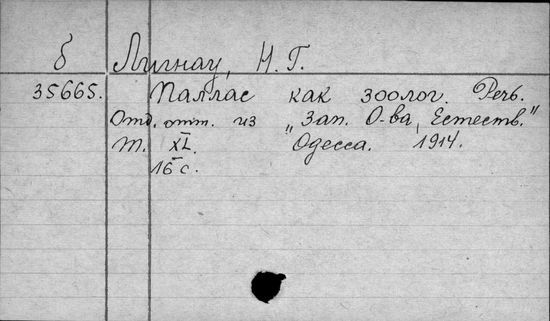 б Лигнау, Н. Г.
35665. Паллас как зоолог. Речь.
Отд. отт. из „Зап. О-ва Естеств."
т. XL. Одесса. 1914.
16 с.